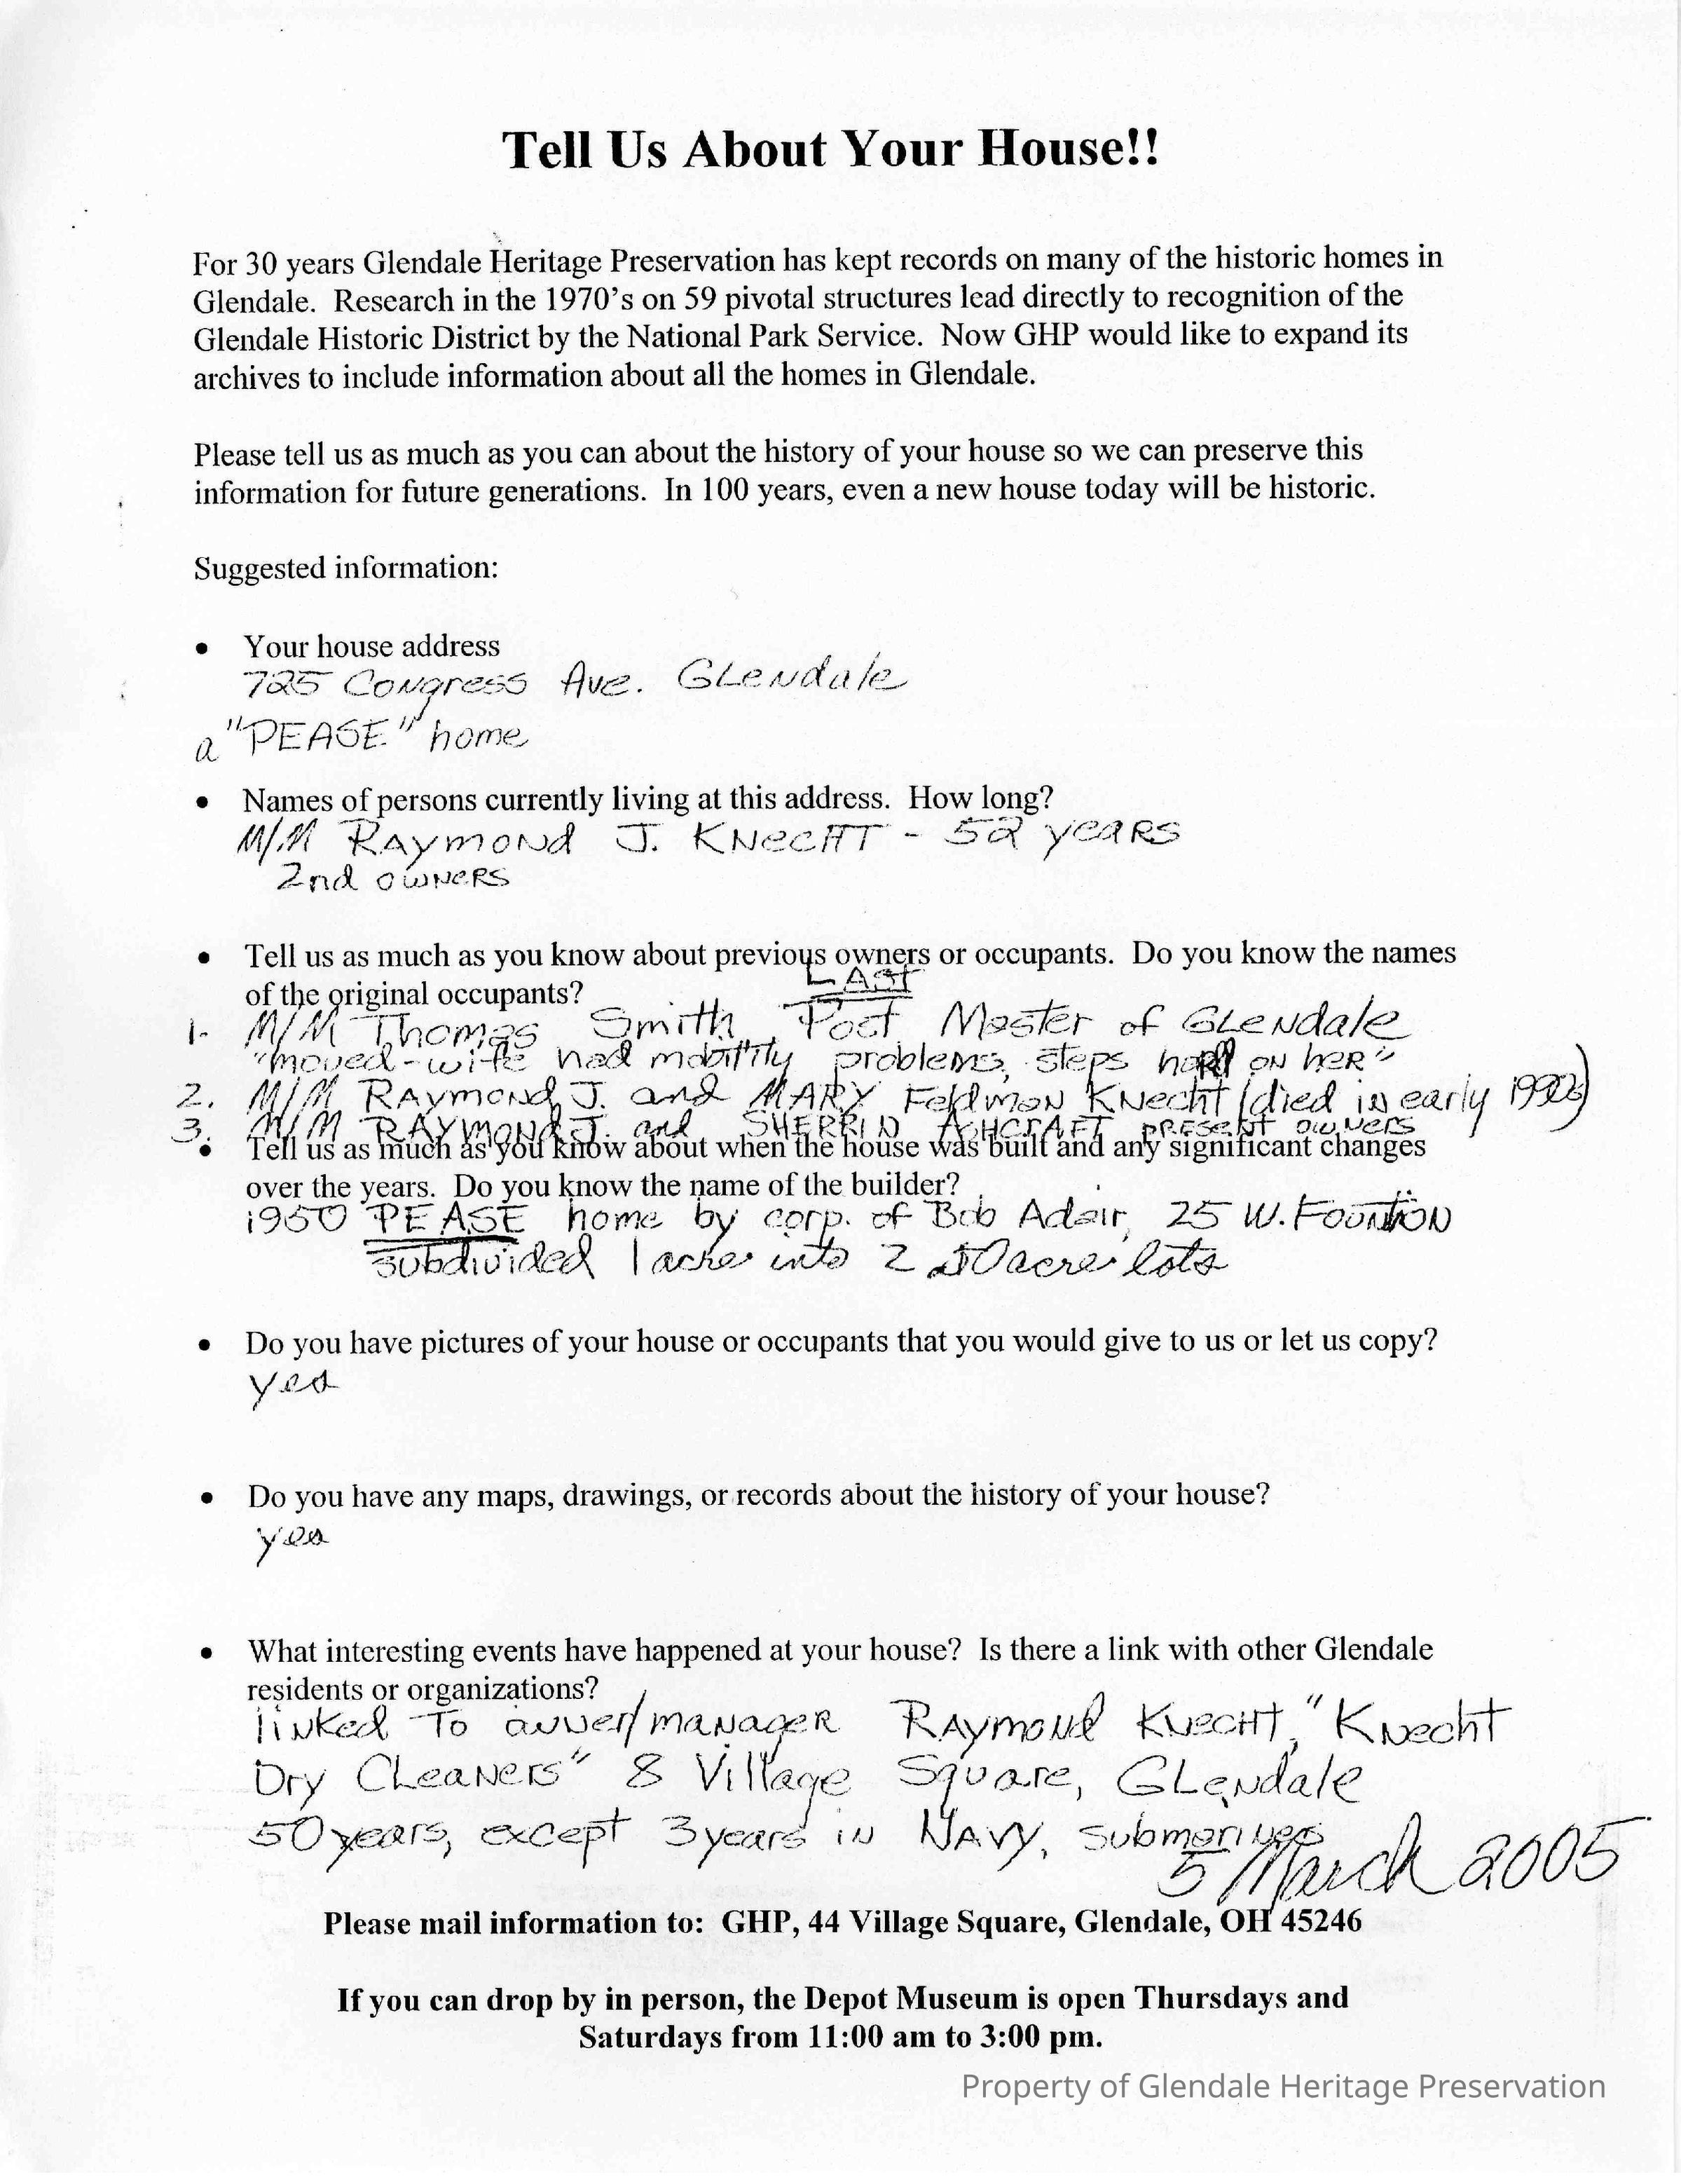 Tell Us About Your House!!
For 30 years Glendale Heritage Preservation has kept records on many of the historic homes in
Glendale. Research in the 1970's on 59 pivotal structures lead directly to recognition of the
Glendale Historic District by the National Park Service. Now GHP would like to expand its
archives to include information about all the homes in Glendale.
Please tell us as much as you can about the history of your house so we can preserve this
information for future generations. In 100 years, even a new house today will be historic.
Suggested information:
• Your house address
725 Congress Ave. Glendale
a "PEASE" home
• Names of persons currently living at this address. How long?
M/M Raymond J. Knecht - 52 years
2nd owners
• Tell us as much as you know about previous owners or occupants. Do you know the names
of the original occupants?
LAST
1- M/M Thomas Smith, Post Master of Glendale
"moved - wife had mobility problems, steps hard on her"
2. M/M Raymond J. and MARY Feldmon Knecht (died in early
3. M/M RAYMOND J. and SHERRIN ASHCRAFT present owners
• Tell us as much as you know about when the house was built and any significant changes
over the years. Do you know the name of the builder?
1950 PEASE home by corp. of Bob Adair, 25 W. Fountion
subdivided 1 acre into 2 acre lots
• Do you have pictures of your house or occupants that you would give to us or let us copy?
yes
• Do you have any maps, drawings, or records about the history of your house?
yes
• What interesting events have happened at your house? Is there a link with other Glendale
residents or organizations?
linked to owner/manager Raymond Knecht, "Knecht
Dry Cleaners" 8 Village Square, Glendale
50 years, except 3 years in Navy, submarines
5 March 2005
Please mail information to: GHP, 44 Village Square, Glendale, OH 45246
If you can drop by in person, the Depot Museum is open Thursdays and
Saturdays from 11:00 am to 3:00 pm.
Property of Glendale Heritage Preservation